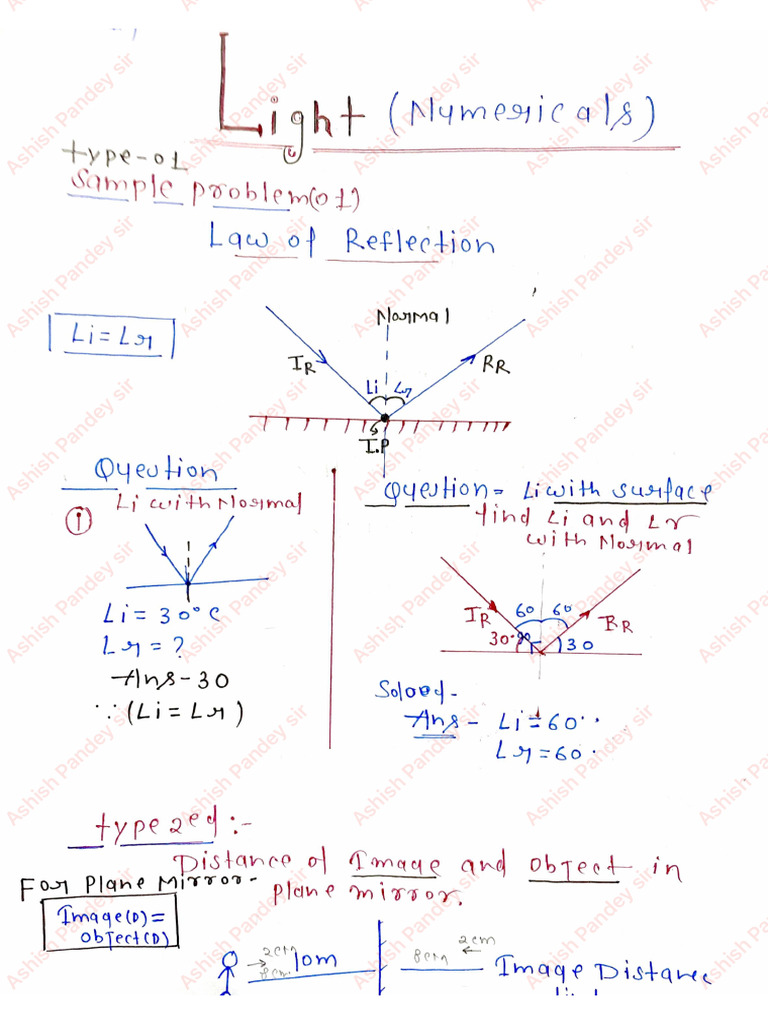 Light (Numericals)
type-01
Sample problem(01)
Law of Reflection
Li = Lr
Normal
IR
Li Lr
RR
I.P
Qyeution
Li with Normal
i
Li = 30° c
Lr = ?
Ans - 30
∵ (Li = Lr)
Qyestion = Li with surface
find Li and Lr
with Normal
IR
60 60
RR
30
Ans - Li = 60
Lr = 60
type 2ed :-
Distance of Image and object in
plane mirror.
For Plane Mirror -
Image(D) =
object(D)
2cm
8cm
10m
8cm
2cm
Image Distance
Ashish Pandey sir